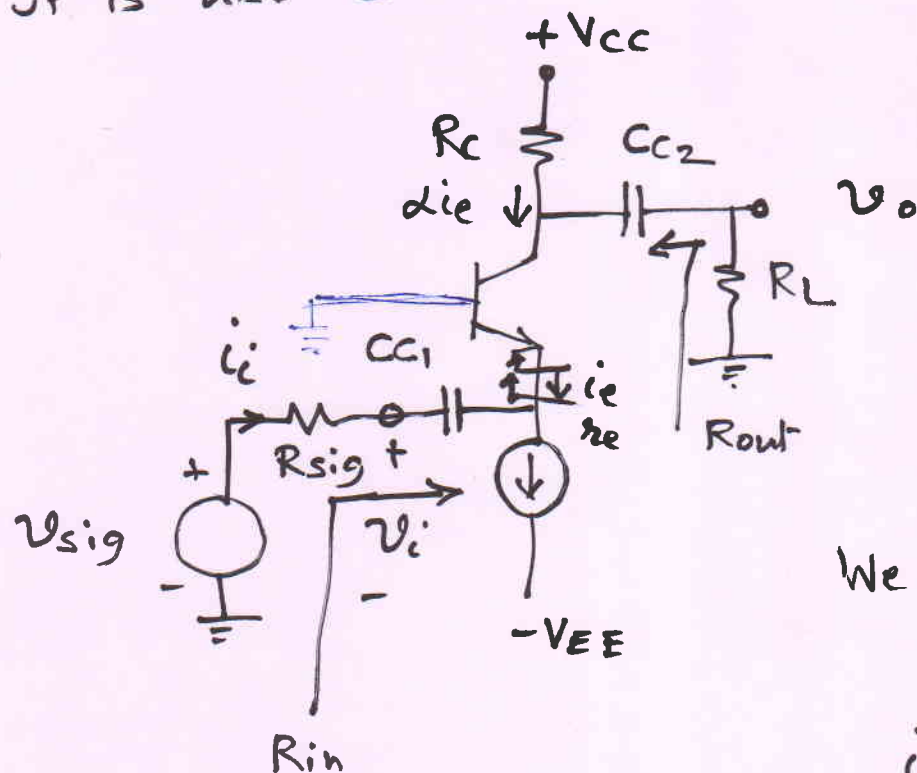 It is
+ Vcc
Rc
Cc2
αie
vo
RL
ii
CC1
ie
re
Rout
+
Rsig +
vsig
vi
-
-
We
-VEE
Rin